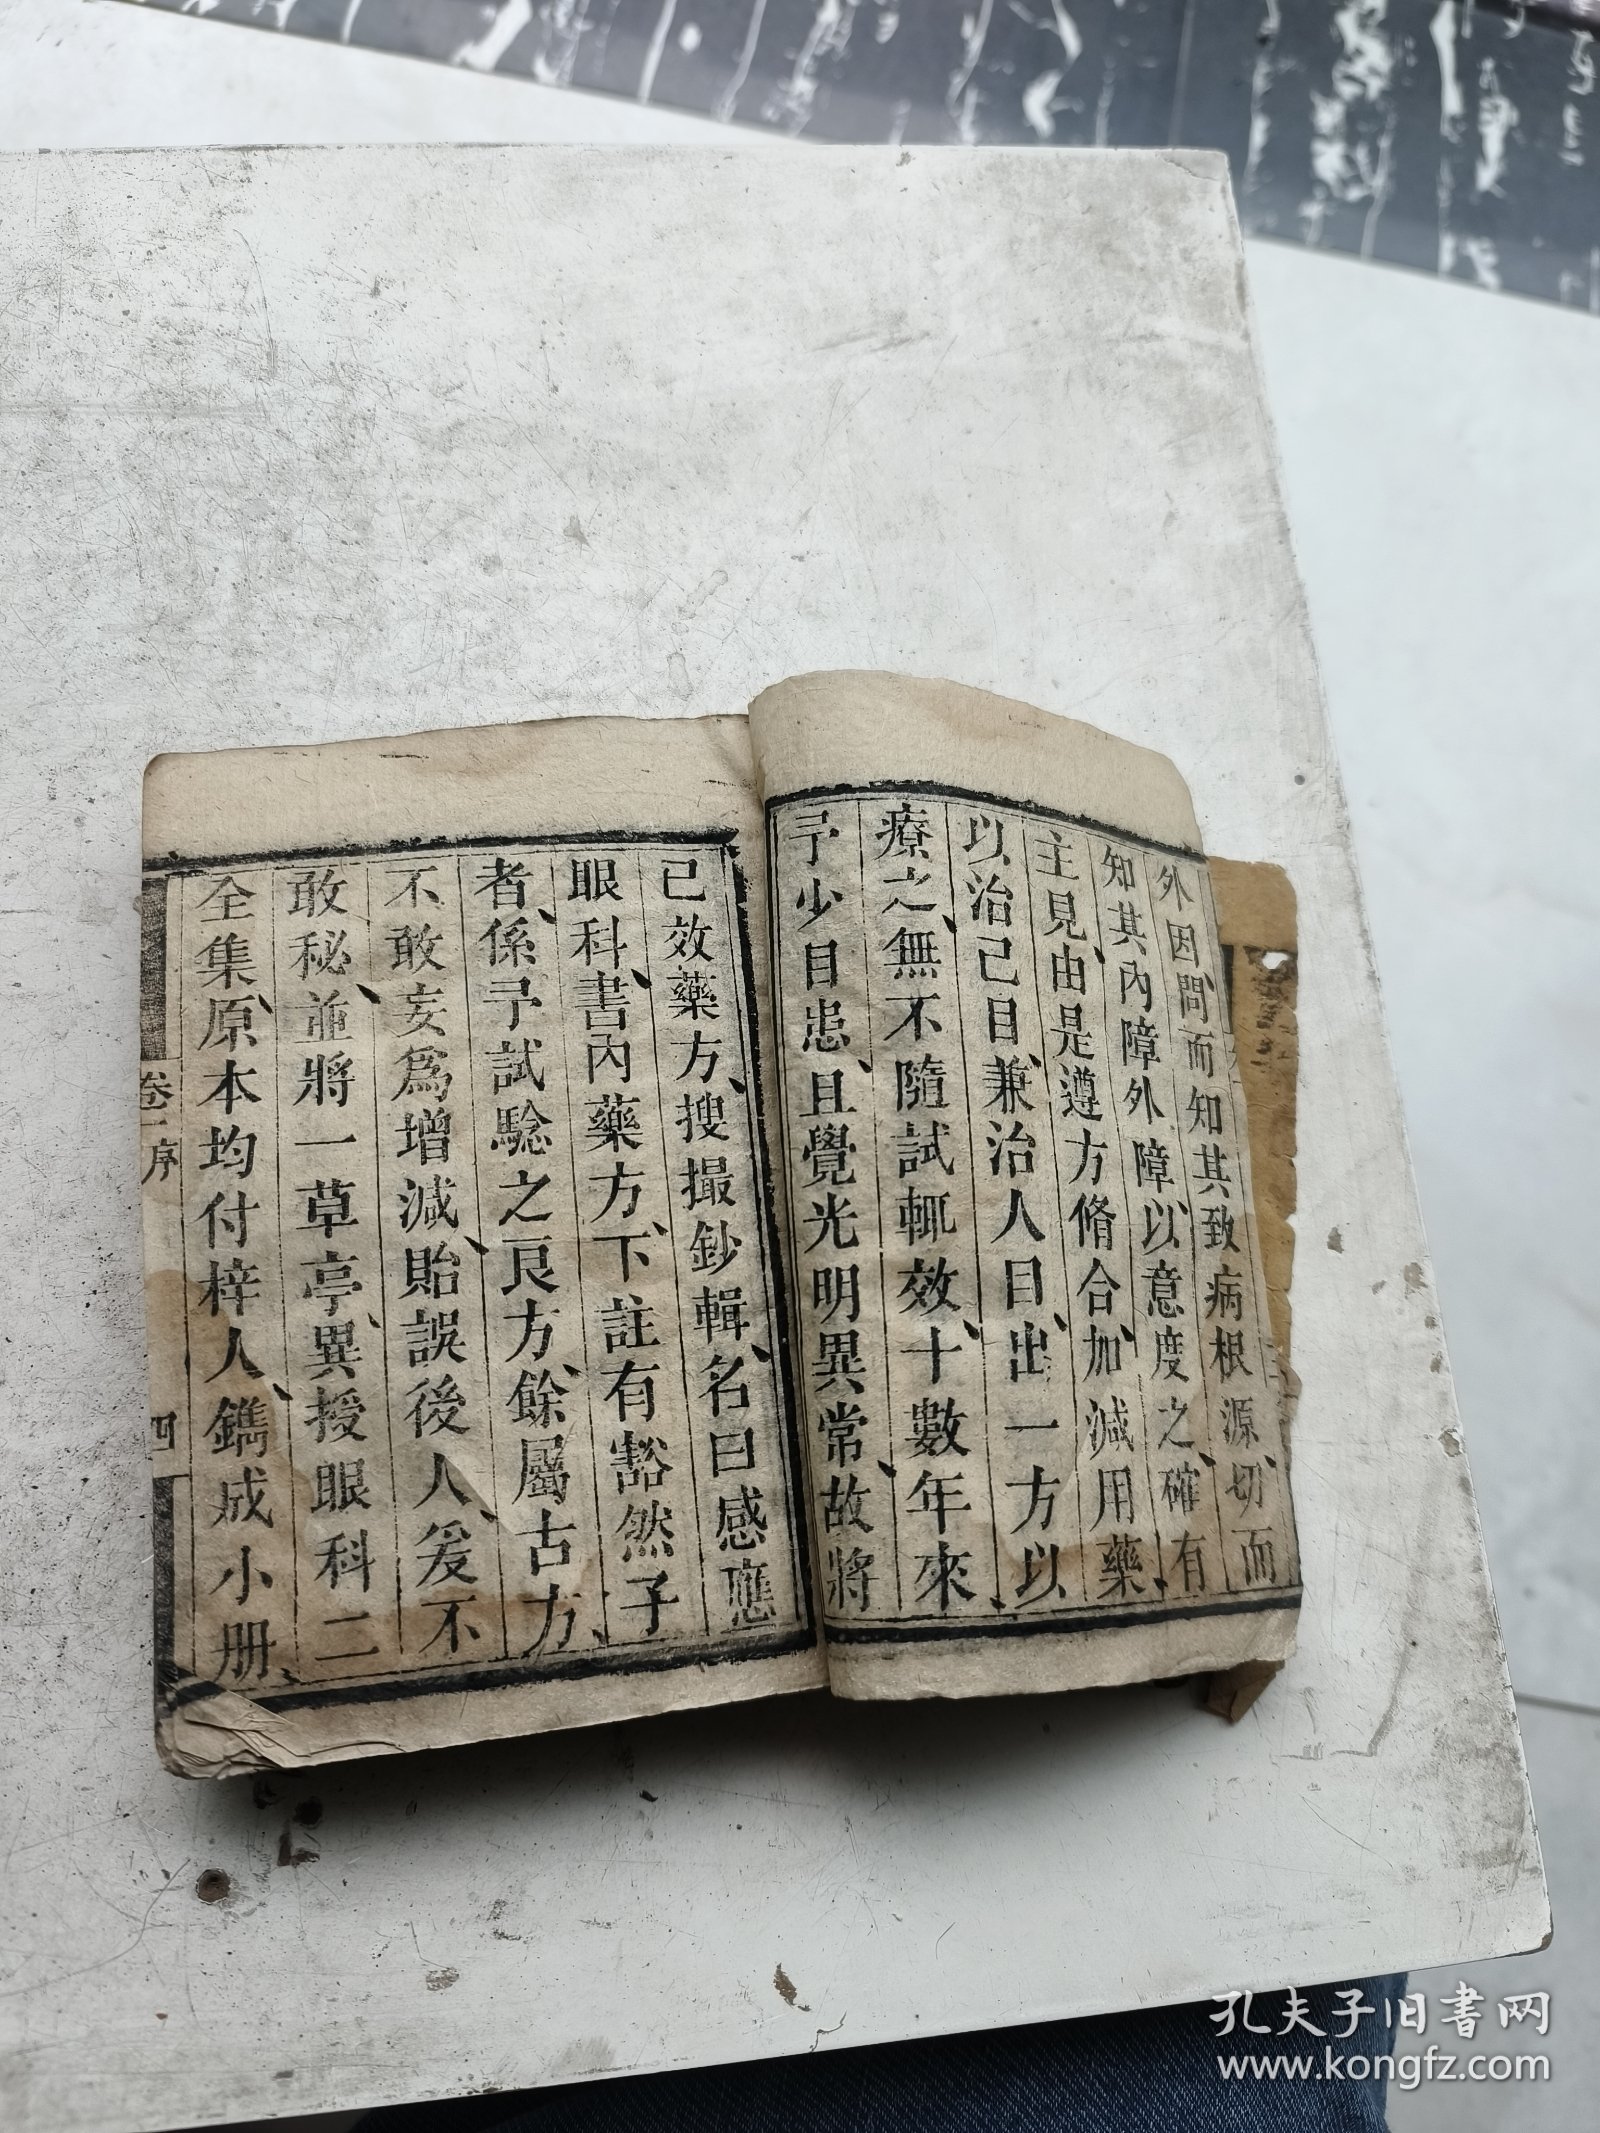 外因、問而知其致病根源、切而
知其內障外障、以意度之、確有
主見、由是遵方脩合、加減用藥、
以治己目、兼治人目、出一方以
療之、無不隨試輒效、十數年來、
予少目患、且覺光明異常、故將
已效藥方、搜撮鈔輯、名曰感應
眼科、書內藥方、下註有豁然子
者、係予試騐之良方、餘屬古方、
不敢妄爲增減、貽誤後人、爰不
敢秘、並將一草亭、異授眼科二
全集、原本均付梓人、鐫成小册、
卷一序
四
孔夫子旧书网
www.kongfz.com